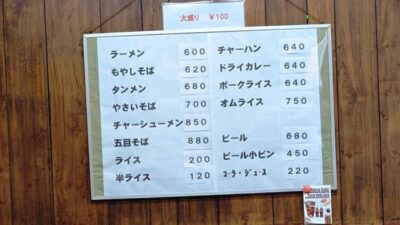 大盛り ￥100
ラーメン 600
もやしそば 620
タンメン 680
やさいそば 700
チャーシューメン 850
五目そば 880
ライス 200
半ライス 120
チャーハン 640
ドライカレー 640
ポークライス 640
オムライス 750
ビール 680
ビール小ビン 450
コーラ・ジュース 220
Coca-Cola